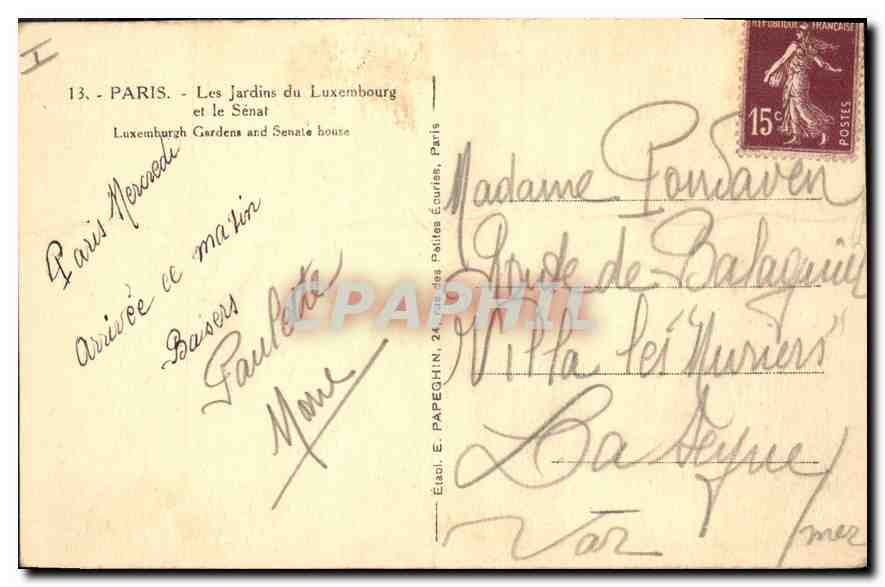 I
13. - PARIS. - Les Jardins du Luxembourg
et le Sénat
Luxemburgh Gardens and Senate house
Paris Mercredi
Arrivée ce matin
Baisers
Paulette
Établ. E. PAPEGHIN, 24, rue des Petites Écuries, Paris
REPUBLIQUE FRANÇAISE
15c
POSTES
Madame Pondaven
Route de Balaguier
Villa les "Muriers"
La Seyne s/
Var mer
CPAPHIL